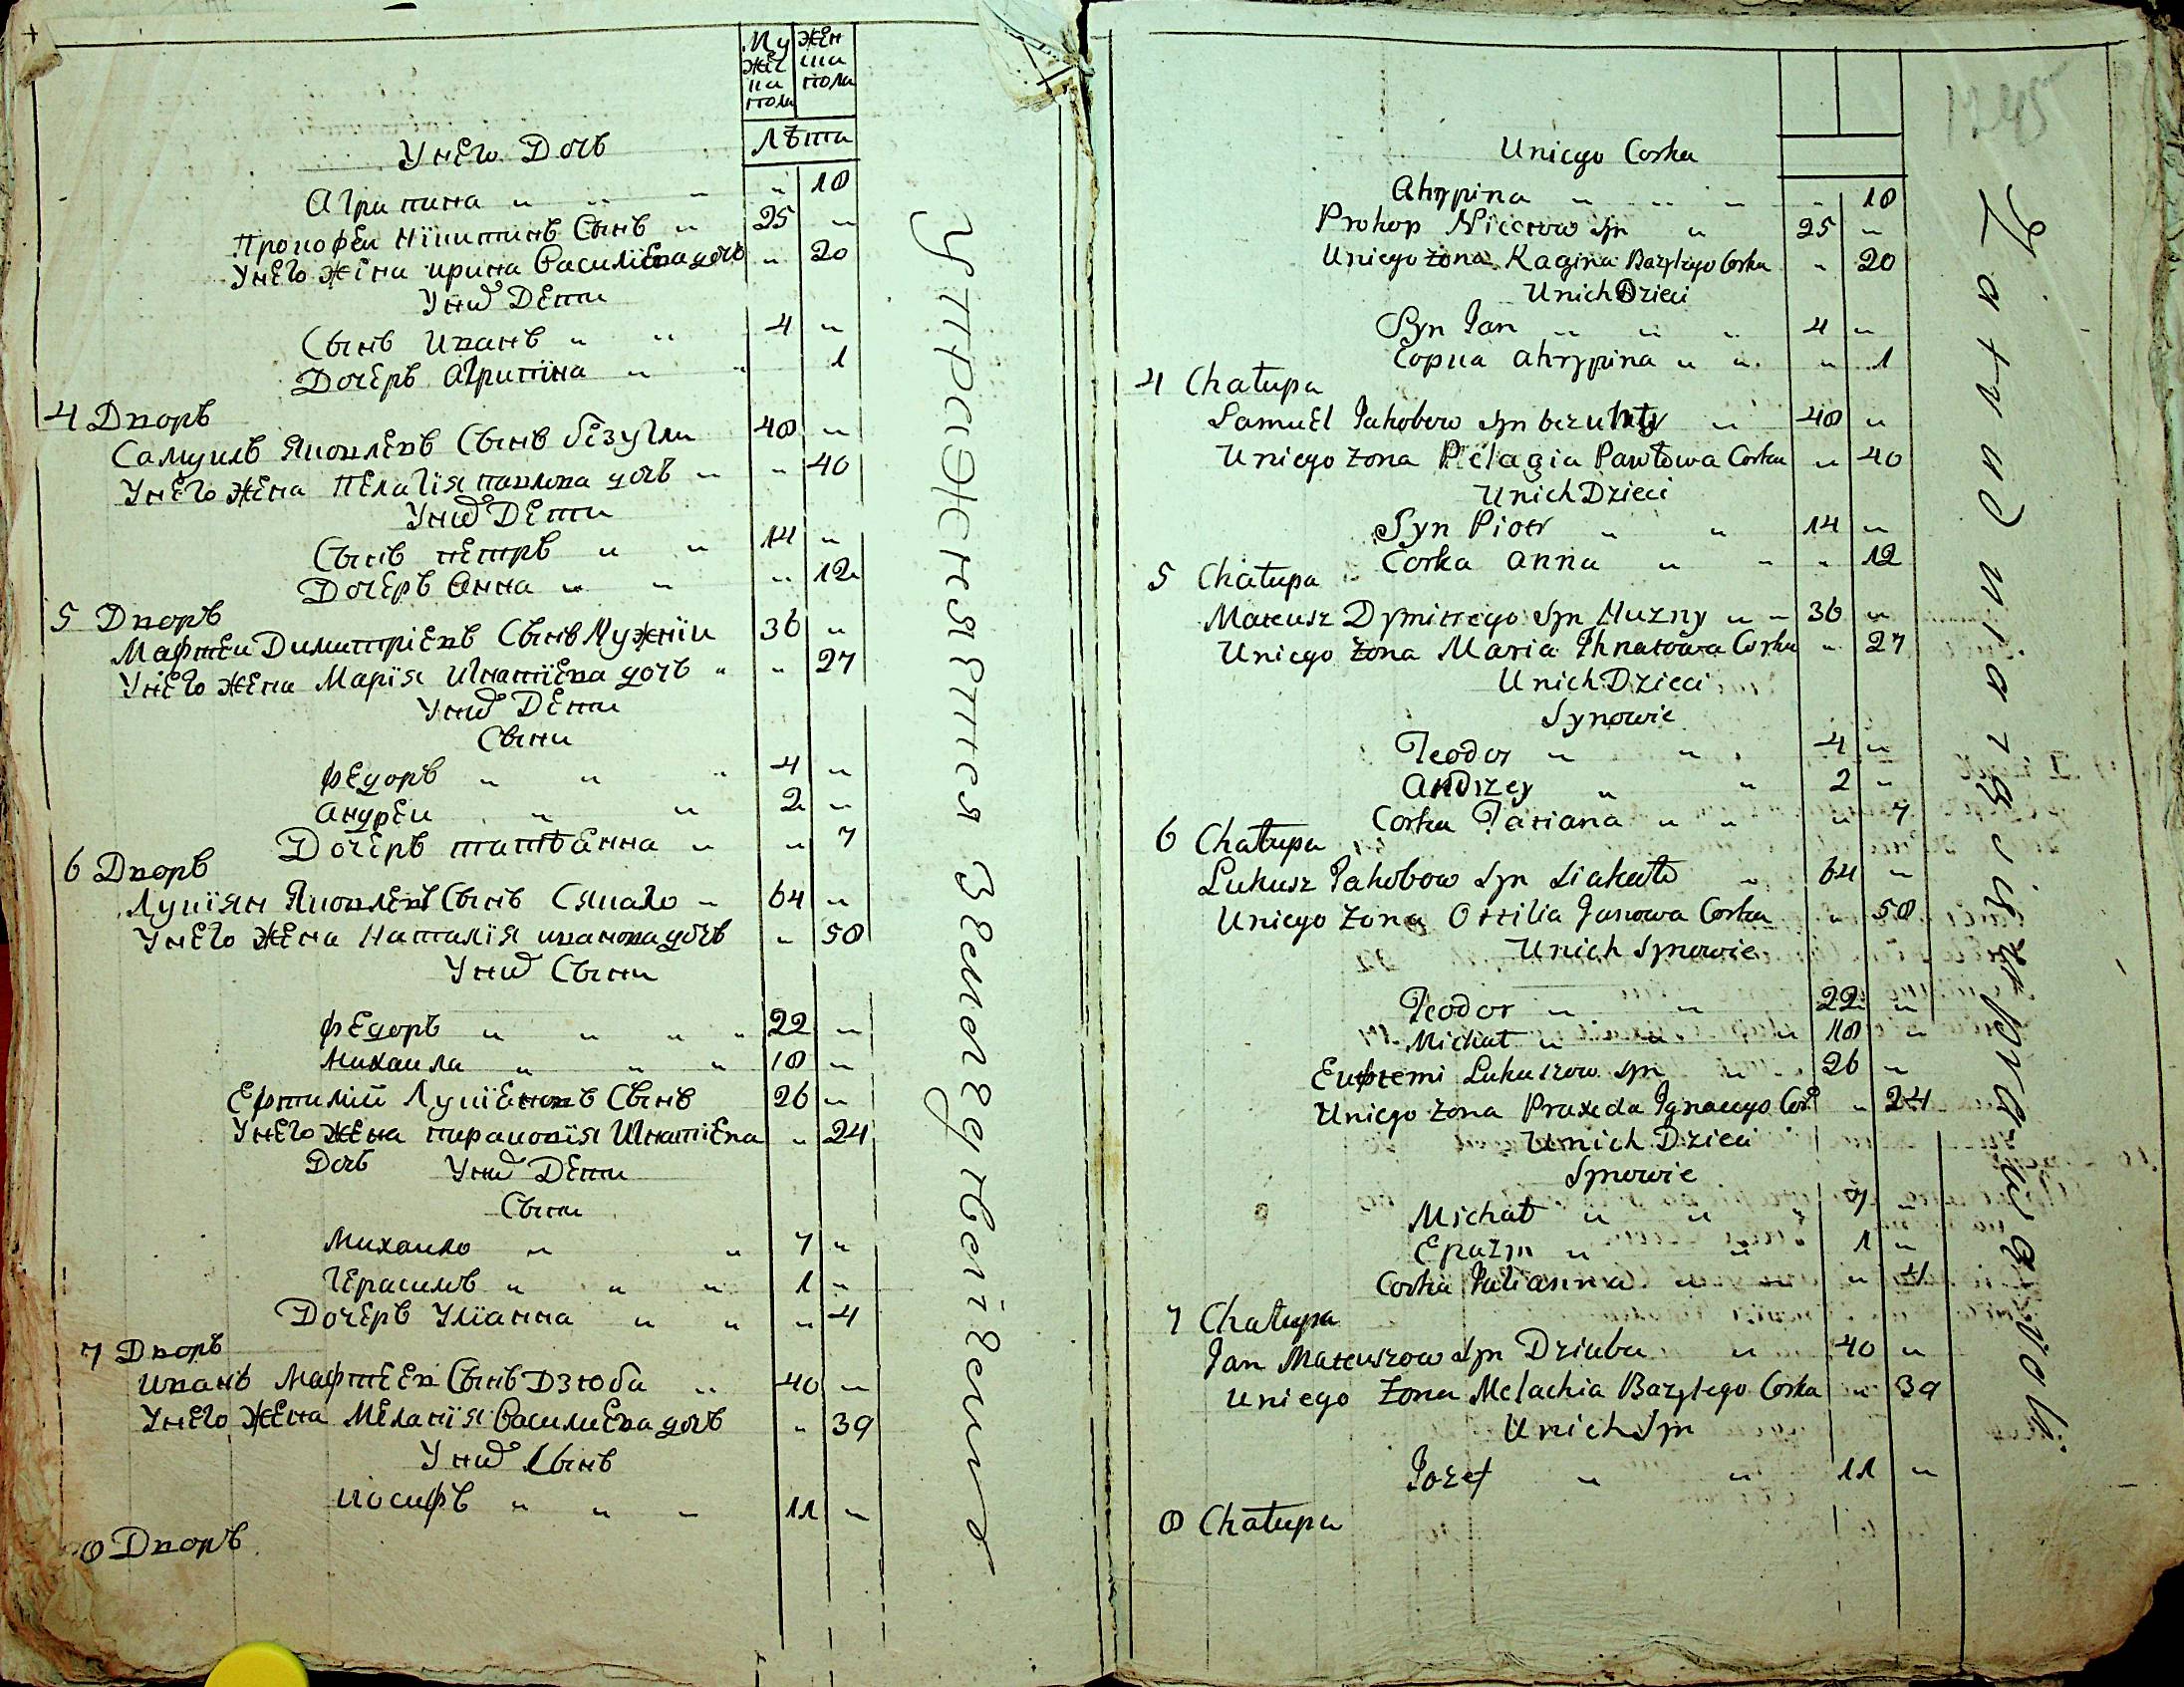 Му жес ка пола
жен ска пола
Лѣта
Унего Дочь
Агрипина " " " " 18
Прокофеи Никитинъ Сынъ " 25 "
Унего жена ирина Василиева дочь " 20
Уних Дети
Сынъ Иванъ " " 4 "
Дочеръ Агрипина " " 1
4 Дворъ
Самуилъ Яковлевъ Сынъ безугли 48 "
Унего жена Пелагiя павлова дочь " " 40
Уних Дети
Сынъ петръ " " 14 "
Дочеръ Анна " " " 12
5 Дворъ
Мафтеи Димитриевъ Сынъ Мужнiи 36 "
Унего жена Марiя Игнатiева дочь " " 27
Уних Дети
Сыни
федоръ " " " 4 "
андреи " " 2 "
Дочеръ татьанна " " 7
6 Дворъ
Лукiян Яковлевъ Сынъ Сякало " 64 "
Унего жена Наталiя иванова дочь " 58
Уних Сыни
федоръ " " " " 22 "
михаила " " " 18 "
Ефтимiй Лукiеновъ Сынъ 26 "
Унего жена параковiя Игнатiева " 24
Дочь Уних Дети
Сыни
Михаило " " 7 "
Герасимъ " " " 1 "
Дочеръ Улiанна " " " 4
7 Дворъ
иванъ Мафтеев Сынъ Дзюба " 40 "
Унего жена Меланiя Василиева дочь " 39
Уних Сынъ
иосифъ " " " 11 "
8 Дворъ
Unicgo Corka
Ahrypina " " " " 18
Prohop Nicerow Syn " 25 "
Uniego żona Ragina Bazylego Corka " 20
Unich Dzieci
Syn Jan " " " 4 "
Corka Ahrypina " " " 1
4 Chałupa
Samuel Jakobow Syn bezuhły " 48 "
Uniego żona Pelagia Pawłowa Corka " 40
Unich Dzieci
Syn Piotr " " 14 "
Corka Anna " " " 12
5 Chałupa
Mateusz Dymitrego Syn Muzny " " 36 "
Uniego żona Maria Ihnatowa Corka " 27
Unich Dzieci
Synowie
Teodor " " 4 "
Andrzey " " 2 "
Corka Tatiana " " " 7
6 Chałupa
Lukasz Jakobow Syn Siakało " 64 "
Uniego żona Ottilia Janowa Corka " 58
Unich Synowie
Teodor " " 22 "
Michał " " " 18 "
Eufremi Lukaszow Syn " 26 "
Uniego żona Praxeda Ignacego Cor " 24
Unich Dzieci
Synowie
Michał " " " 7 "
Erazm " " 1 "
Corka Julianna " " " 4
7 Chałupa
Jan Mateuszow Syn Dziuba " 40 "
Uniego żona Melachia Bazylego Corka " 39
Unich Syn
Jozef " " 11 "
8 Chałupa